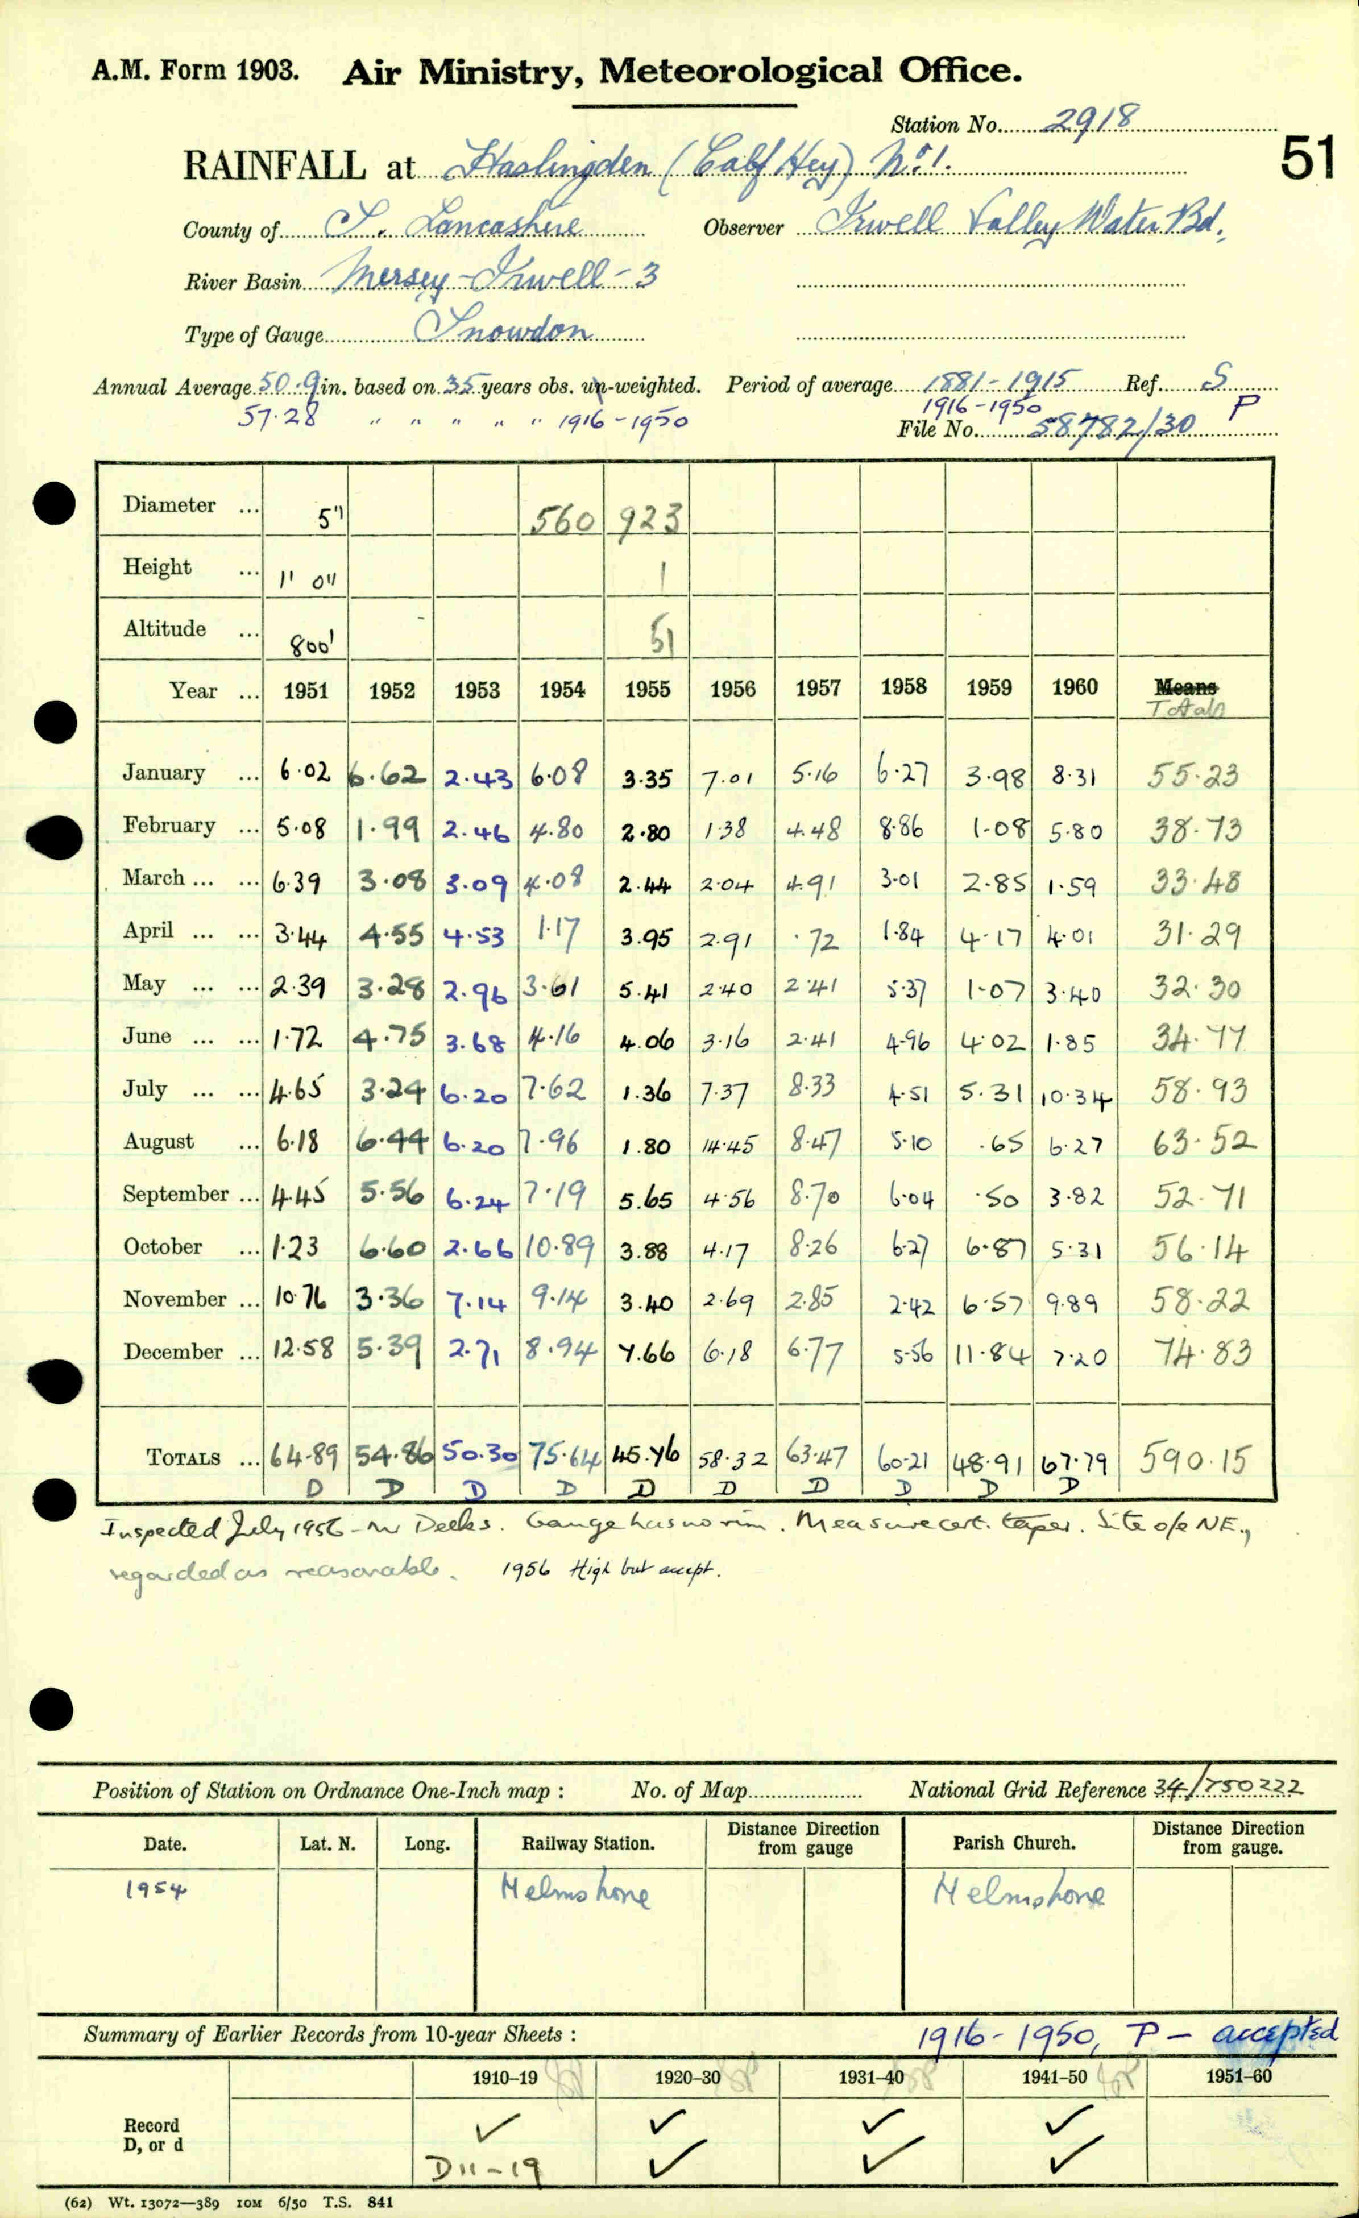 A.M. Form 1903. Air Ministry, Meteorological Office.
Station No. 2918
51
RAINFALL at Haslingden (Calf Hey) No 1.
County of S. Lancashire Observer Irwell Valley Water Bd.
River Basin Mersey-Irwell-3
Type of Gauge Snowdon
Annual Average 50.9 in. based on 35 years obs. un-weighted. Period of average 1881-1915 Ref. S
57.28 " " " " " 1916-1950 1916-1950 P
File No. 58782/30
Diameter ... 5" 560 923
Height ... 1' 0" 1
Altitude ... 800' 51
Year ... 1951 1952 1953 1954 1955 1956 1957 1958 1959 1960 Means
Totals
January ... 6.02 6.62 2.43 6.08 3.35 7.01 5.16 6.27 3.98 8.31 55.23
February ... 5.08 1.99 2.46 4.80 2.80 1.38 4.48 8.86 1.08 5.80 38.73
March ... ... 6.39 3.08 3.09 4.08 2.44 2.04 4.91 3.01 2.85 1.59 33.48
April ... ... 3.44 4.55 4.53 1.17 3.95 2.91 .72 1.84 4.17 4.01 31.29
May ... ... 2.39 3.28 2.96 3.61 5.41 2.40 2.41 5.37 1.07 3.40 32.30
June ... ... 1.72 4.75 3.68 4.16 4.06 3.16 2.41 4.96 4.02 1.85 34.77
July ... ... 4.65 3.24 6.20 7.62 1.36 7.37 8.33 4.51 5.31 10.34 58.93
August ... 6.18 6.44 6.20 7.96 1.80 14.45 8.47 5.10 .65 6.27 63.52
September ... 4.45 5.56 6.24 7.19 5.65 4.56 8.70 6.04 .50 3.82 52.71
October ... 1.23 6.60 2.66 10.89 3.88 4.17 8.26 6.27 6.87 5.31 56.14
November ... 10.76 3.36 7.14 9.14 3.40 2.69 2.85 2.42 6.57 9.89 58.22
December ... 12.58 5.39 2.71 8.94 7.66 6.18 6.77 5.56 11.84 7.20 74.83
TOTALS ... 64.89 54.86 50.30 75.64 45.76 58.32 63.47 60.21 48.91 67.79 590.15
D D D D D D D D D D
Inspected July 1956 - Mr Deeks. Gauge has no rim. Measure cert. taper. Site o/e NE.,
regarded as reasonable. 1956 High but accept.
Position of Station on Ordnance One-Inch map : No. of Map National Grid Reference 34/750222
Date. Lat. N. Long. Railway Station. Distance from Direction gauge Parish Church. Distance from Direction gauge.
1954 Helmshore Helmshore
Summary of Earlier Records from 10-year Sheets : 1916-1950, P - accepted
1910-19 1920-30 1931-40 1941-50 1951-60
Record ✓ ✓ ✓ ✓
D, or d D 11-19 ✓ ✓ ✓
(62) Wt. 13072—389 10M 6/50 T.S. 841